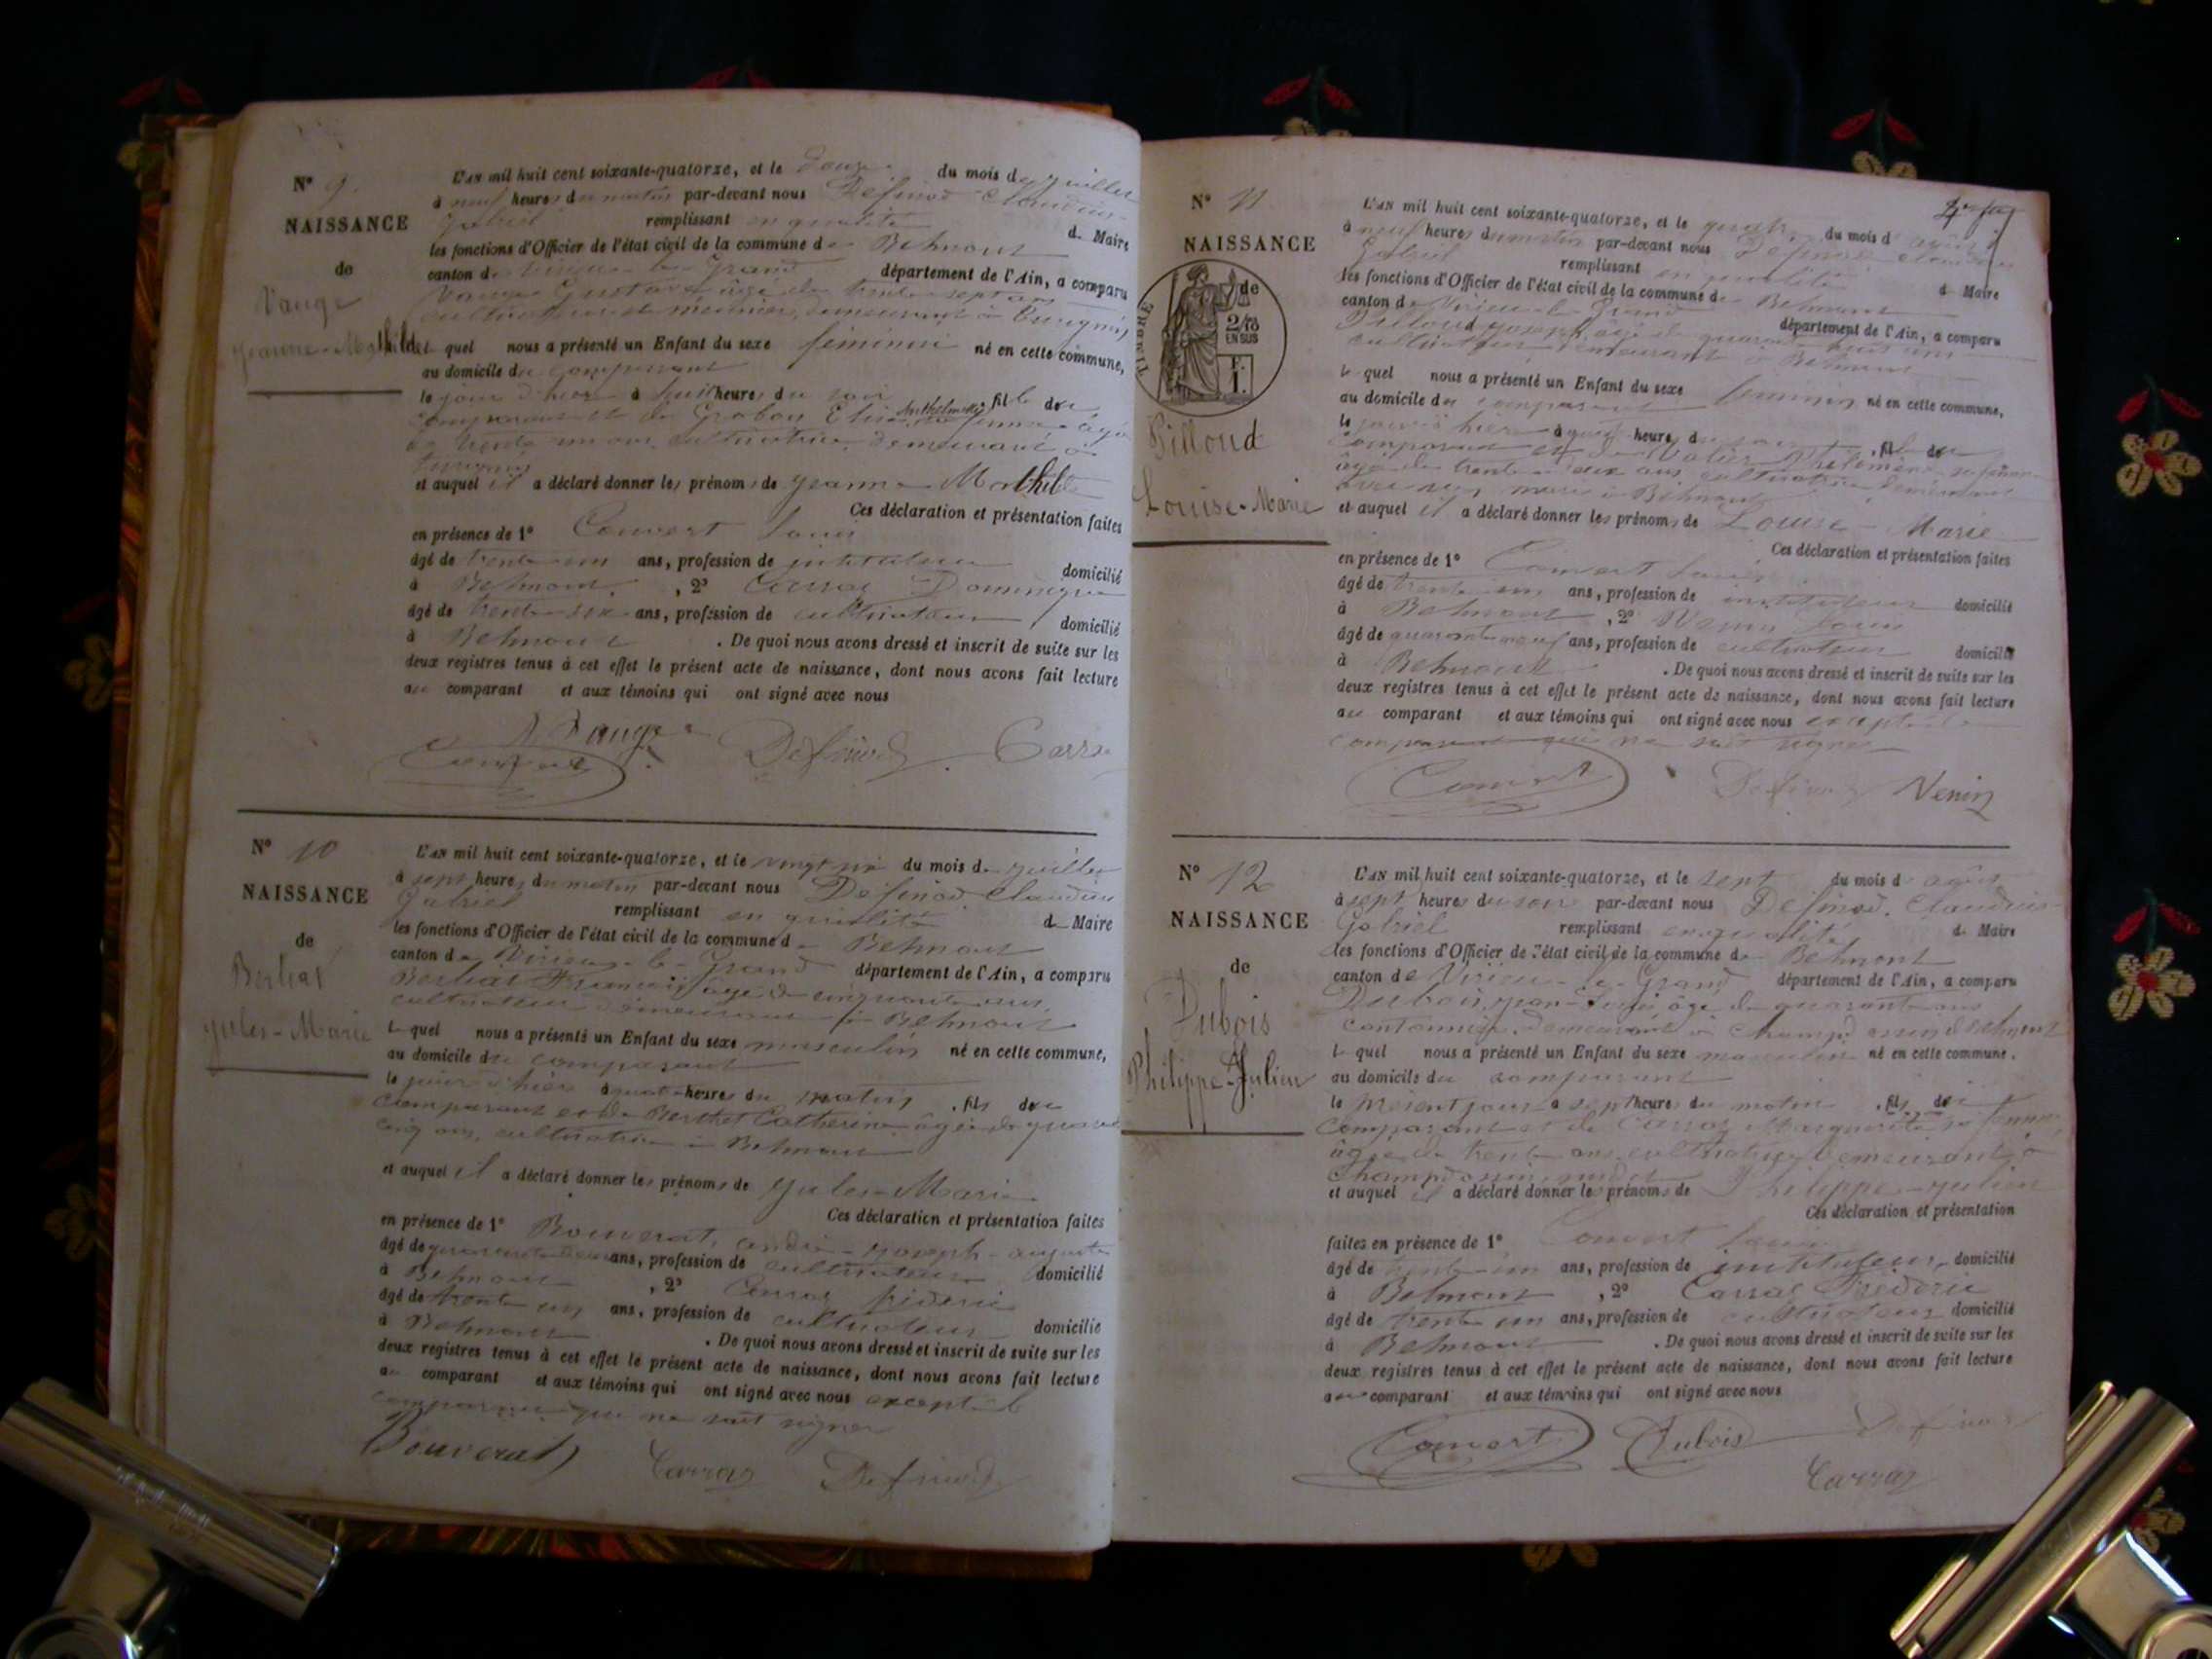 N° 9.
NAISSANCE
de
Vauge
Jeanne-Mathilde
L'AN mil huit cent soixante-quatorze, et le douze du mois de juillet
à neuf heures du matin par-devant nous Definod Claudius
Gabriel remplissant en qualité de Maire
les fonctions d'Officier de l'état civil de la commune de Belmont
canton de Virieu-le-Grand département de l'Ain, a comparu
Vauge Gustave âgé de trente sept ans
cultivateur et meunier, demeurant à
lequel nous a présenté un Enfant du sexe féminin né en cette commune,
au domicile du comparant
le jour d'hier à huit heures du soir fille du
comparant et de Grobon Anthelmette sa femme âgée
de trente un ans, cultivatrice, demeurant à
et auquel il a déclaré donner les prénoms de Jeanne-Mathilde
Ces déclaration et présentation faites
en présence de 1° Convert Louis
âgé de trente-un ans, profession de instituteur domicilié
à Belmont, 2° Carraz Dominique
âgé de trente-six ans, profession de cultivateur, domicilié
à Belmont. De quoi nous avons dressé et inscrit de suite sur les
deux registres tenus à cet effet le présent acte de naissance, dont nous avons fait lecture
au comparant et aux témoins qui ont signé avec nous
Vauge
Convert Definod Carraz
N° 10
NAISSANCE
de
Berliat
Jules-Marie
L'AN mil huit cent soixante-quatorze, et le vingt six du mois de juillet
à sept heures du matin par-devant nous Definod Claudius
Gabriel remplissant en qualité de Maire
les fonctions d'Officier de l'état civil de la commune de Belmont
canton de Virieu-le-Grand département de l'Ain, a comparu
Berliat François âgé de cinquante ans,
cultivateur demeurant à Belmont
lequel nous a présenté un Enfant du sexe masculin né en cette commune,
au domicile du comparant
le jour d'hier à quatre heures du matin, fils du
comparant et de Berthet Catherine âgée de quarante
cinq ans, cultivatrice à Belmont
et auquel il a déclaré donner les prénoms de Jules-Marie
Ces déclaration et présentation faites
en présence de 1° Bouverat, andré-joseph-auguste
âgé de quarante-deux ans, profession de cultivateur domicilié
à Belmont, 2° Carraz frideric
âgé de trente un ans, profession de cultivateur domicilié
à Belmont. De quoi nous avons dressé et inscrit de suite sur les
deux registres tenus à cet effet le présent acte de naissance, dont nous avons fait lecture
au comparant et aux témoins qui ont signé avec nous excepté le
comparant qui ne sait signer
Bouverat Carraz Definod
N° 11
NAISSANCE
de
TIMBRE
2/10
EN SUS
1 F.
Pilloud
Louise-Marie
L'AN mil huit cent soixante-quatorze, et le quatre du mois d'août
à neuf heures du matin par-devant nous Definod Claudius
Gabriel remplissant en qualité de Maire
les fonctions d'Officier de l'état civil de la commune de Belmont
canton de Virieu-le-Grand département de l'Ain, a comparu
Pilloud Joseph âgé de quarante ans
cultivateur demeurant à Belmont
lequel nous a présenté un Enfant du sexe féminin né en cette commune,
au domicile du comparant
le jour d'hier à heures du soir, fille du
comparant et de philomène sa femme
âgée de trente-deux ans cultivatrice demeurant
avec son mari à Belmont
et auquel il a déclaré donner les prénoms de Louise-Marie
Ces déclaration et présentation faites
en présence de 1° Convert Louis
âgé de trente-un ans, profession de instituteur domicilié
à Belmont, 2° Venin Louis
âgé de quarante-neuf ans, profession de cultivateur domicilié
à Belmont. De quoi nous avons dressé et inscrit de suite sur les
deux registres tenus à cet effet le présent acte de naissance, dont nous avons fait lecture
au comparant et aux témoins qui ont signé avec nous excepté le
comparant qui ne sait signer
Convert Definod Venin
N° 12
NAISSANCE
de
Dubois
Philippe-Julien
L'AN mil huit cent soixante-quatorze, et le sept du mois d'août
à sept heures du soir par-devant nous Definod Claudius-
Gabriel remplissant en qualité de Maire
les fonctions d'Officier de l'état civil de la commune de Belmont
canton de Virieu-le-Grand département de l'Ain, a comparu
Dubois, âgé de quarante ans
cantonnier, demeurant à Champdossin Belmont
lequel nous a présenté un Enfant du sexe masculin né en cette commune,
au domicile du comparant
le présent jour à sept heures du matin, fils du
comparant et de Carraz Marguerite sa femme
âgée de trente ans cultivatrice demeurant à
Champdossin
et auquel il a déclaré donner les prénoms de Philippe-Julien
Ces déclaration et présentation
faites en présence de 1° Convert Louis
âgé de trente-un ans, profession de instituteur, domicilié
à Belmont, 2° Carraz Frédéric
âgé de trente un ans, profession de cultivateur domicilié
à Belmont. De quoi nous avons dressé et inscrit de suite sur les
deux registres tenus à cet effet le présent acte de naissance, dont nous avons fait lecture
au comparant et aux témoins qui ont signé avec nous
Convert Dubois Definod
Carraz